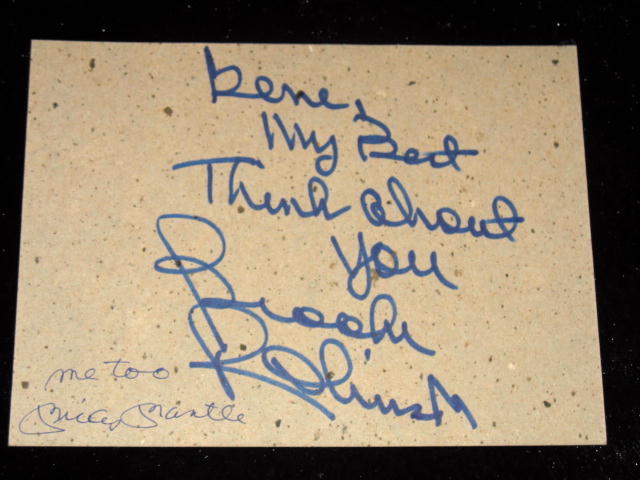 Gene,
My Best
Think about
You
Brooks
Robinson
me too
Mickey Mantle